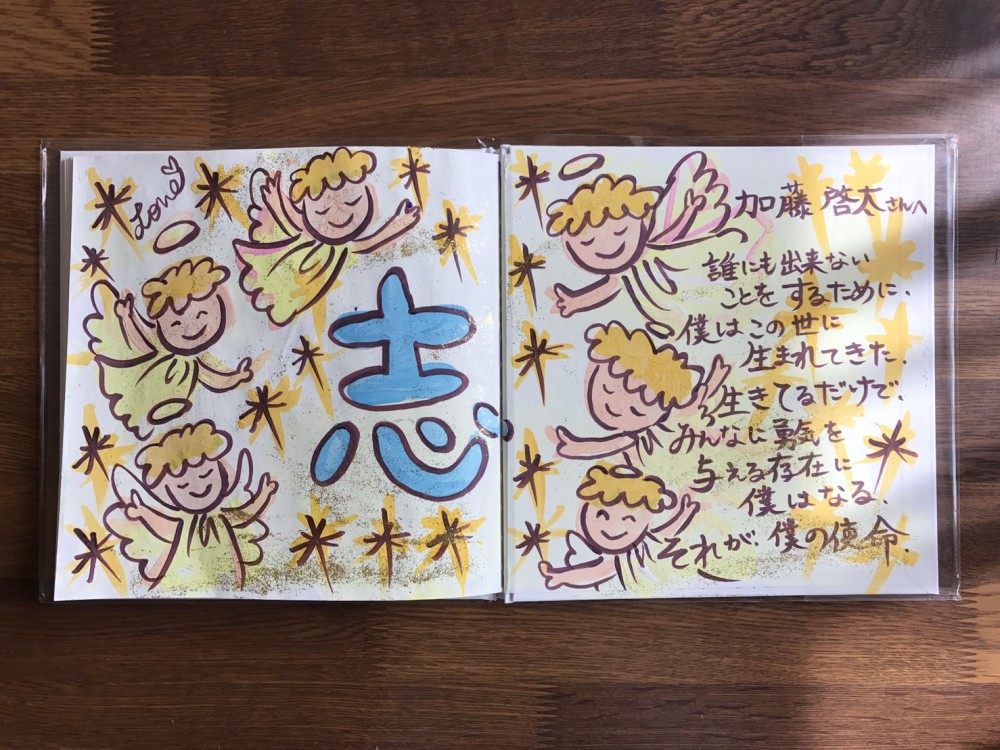 Love
志
加藤啓太さんへ
誰にも出来ない
ことをするために、
僕はこの世に
生まれてきた。
生きてるだけで、
みんなに勇気を
与える存在に
僕はなる。
それが、僕の使命。